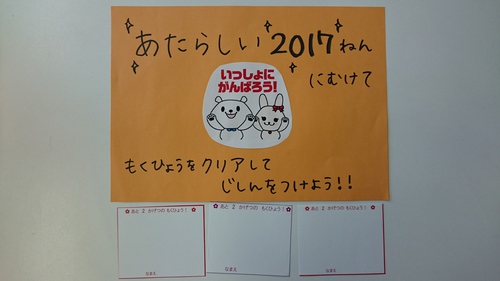 あたらしい 2017 ねん
にむけて
いっしょに
がんばろう!
もくひょうをクリアして
じしんをつけよう!!
あと 2 かげつの もくひょう!
なまえ
あと 2 かげつの もくひょう!
なまえ
あと 2 かげつの もくひょう!
なまえ